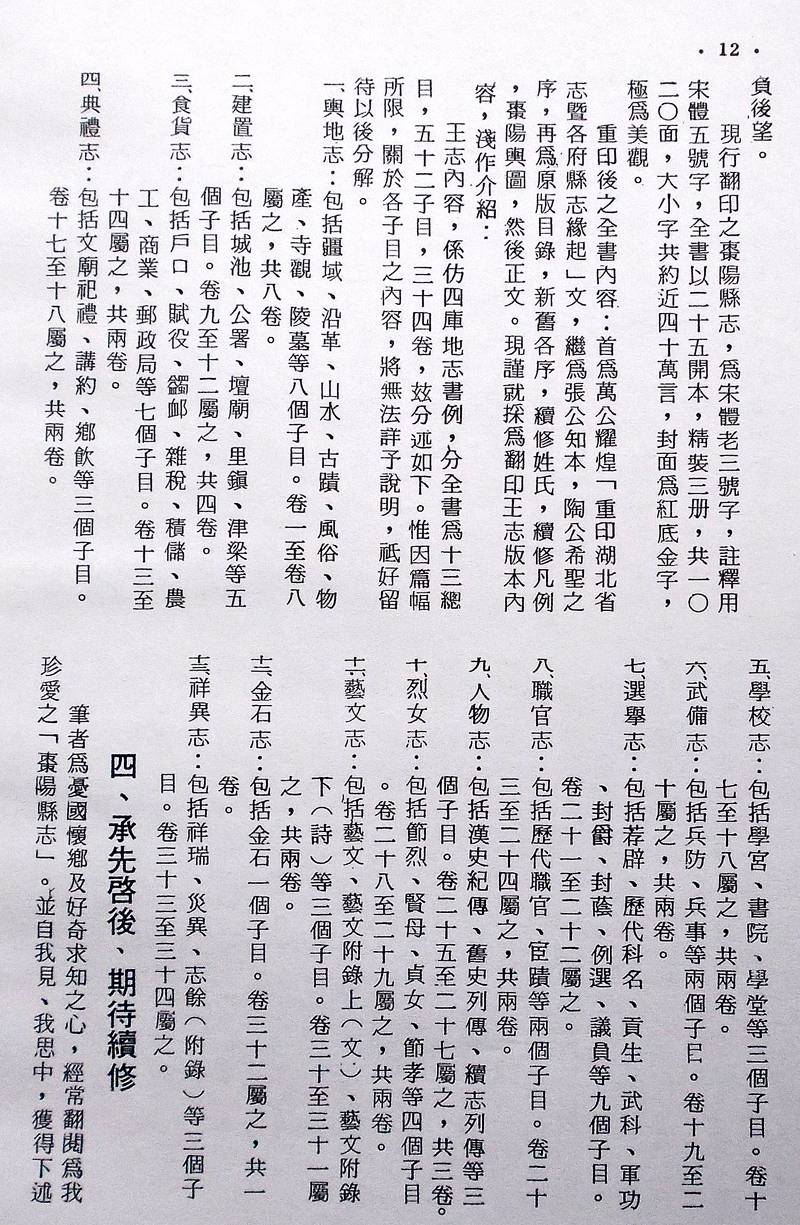 • 12 •
負後望。
現行翻印之棗陽縣志，爲宋體老三號字，註釋用
宋體五號字，全書以二十五開本，精裝三册，共一〇
二〇面，大小字共約近四十萬言，封面爲紅底金字，
極爲美觀。
重印後之全書內容：首爲萬公耀煌「重印湖北省
志暨各府縣志緣起」文，繼爲張公知本，陶公希聖之
序，再爲原版目錄，新舊各序，續修姓氏，續修凡例
，棗陽輿圖，然後正文。現謹就採爲翻印王志版本內
容，淺作介紹：
王志內容，係仿四庫地志書例，分全書爲十三總
目，五十二子目，三十四卷，茲分述如下。惟因篇幅
所限，關於各子目之內容，將無法詳予說明，祗好留
待以後分解。
一、輿地志：包括疆域、沿革、山水、古蹟、風俗、物
產、寺觀、陵墓等八個子目。卷一至卷八
屬之，共八卷。
二、建置志：包括城池、公署、壇廟、里鎭、津梁等五
個子目。卷九至十二屬之，共四卷。
三、食貨志：包括戶口、賦役、蠲卹、雜稅、積儲、農
工、商業、郵政局等七個子目。卷十三至
十四屬之，共兩卷。
四、典禮志：包括文廟祀禮、講約、鄉飲等三個子目。
卷十七至十八屬之，共兩卷。
五、學校志：包括學宮、書院、學堂等三個子目。卷十
七至十八屬之，共兩卷。
六、武備志：包括兵防、兵事等兩個子目。卷十九至二
十屬之，共兩卷。
七、選舉志：包括荐辟、歷代科名、貢生、武科、軍功
、封爵、封蔭、例選、議員等九個子目。
卷二十一至二十二屬之。
八、職官志：包括歷代職官、宦蹟等兩個子目。卷二十
三至二十四屬之，共兩卷。
九、人物志：包括漢史紀傳、舊史列傳、續志列傳等三
個子目。卷二十五至二十七屬之，共三卷。
十、烈女志：包括節烈、賢母、貞女、節孝等四個子目
。卷二十八至二十九屬之，共兩卷。
十一、藝文志：包括藝文、藝文附錄上（文）、藝文附錄
下（詩）等三個子目。卷三十至三十一屬
之，共兩卷。
十二、金石志：包括金石一個子目。卷三十二屬之，共一
卷。
十三、祥異志：包括祥瑞、災異、志餘（附錄）等三個子
目。卷三十三至三十四屬之。
四、承先啓後、期待續修
筆者爲憂國懷鄉及好奇求知之心，經常翻閱爲我
珍愛之「棗陽縣志」。並自我見、我思中，獲得下述